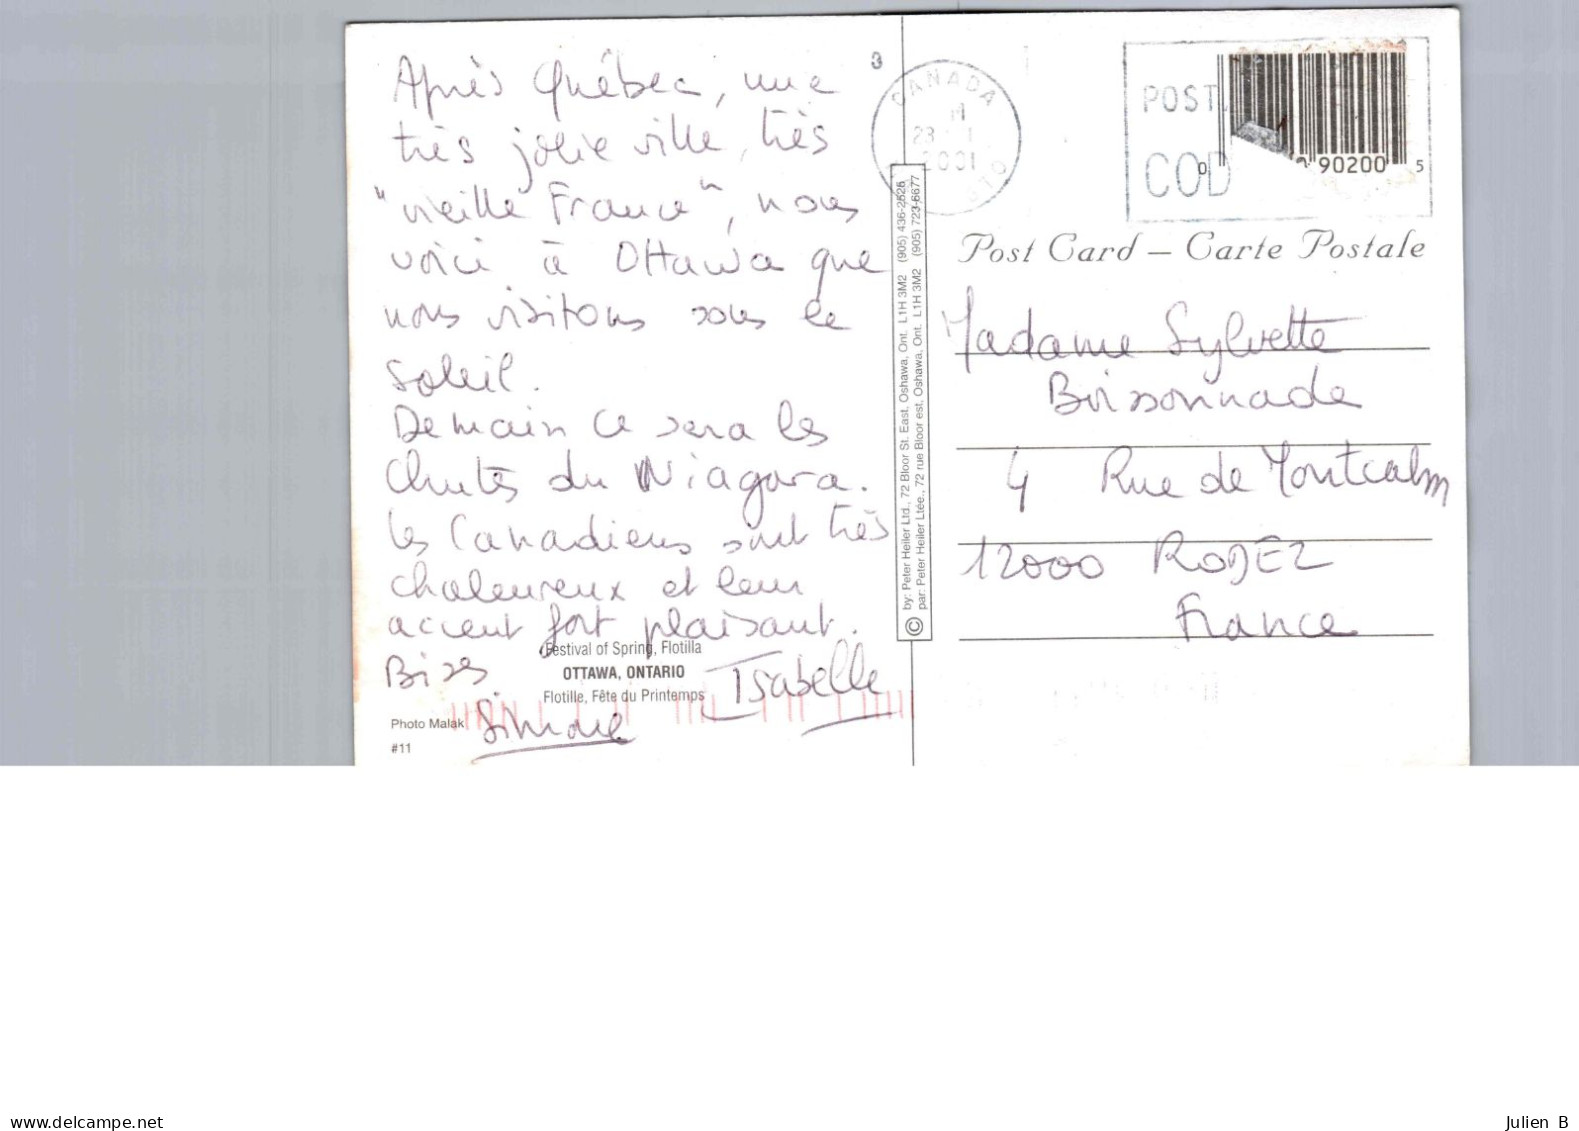 Après Québec, une
très jolie ville, très
"vieille France", nous
voici à Ottawa que
nous visitons sous le
soleil.
Demain ce sera les
Chutes du Niagara.
les Canadiens sont très
chaleureux et leur
accent fort plaisant.
Bises
Isabelle
Simone
Festival of Spring, Flotilla
OTTAWA, ONTARIO
Flotille, Fête du Printemps
Photo Malak
#11
3
CANADA
2001
POST
COD
0 90200 5
© by: Peter Heiler Ltd., 72 Bloor St. East, Oshawa, Ont. L1H 3M2 (905) 436-2526
par: Peter Heiler Ltée., 72 rue Bloor est, Oshawa, Ont. L1H 3M2 (905) 723-6677
Post Card – Carte Postale
Madame Sylvette
Boissonnade
4 Rue de Montcalm
12000 RODEZ
France
www.delcampe.net
Julien B